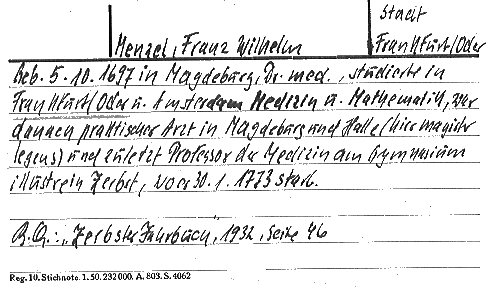 Stadt
Menzel, Franz Wilhelm Frankfurt/Oder
Geb. 5.10.1697 in Magdeburg, Dr. med., studierte in
Frankfurt/Oder u. Amsterdam Medizin u. Mathematik, war
dannen praktischer Arzt in Magdeburg und Halle (hier magister
legens) und zuletzt Professor der Medizin am Gymnasium
illustre in Zerbst, wo er 30.1.1773 starb.
B.Q.: „Zerbster Jahrbuch", 1932, Seite 46
Reg. 10. Stichnote. 1. 50. 232000. A. 803. S. 4062